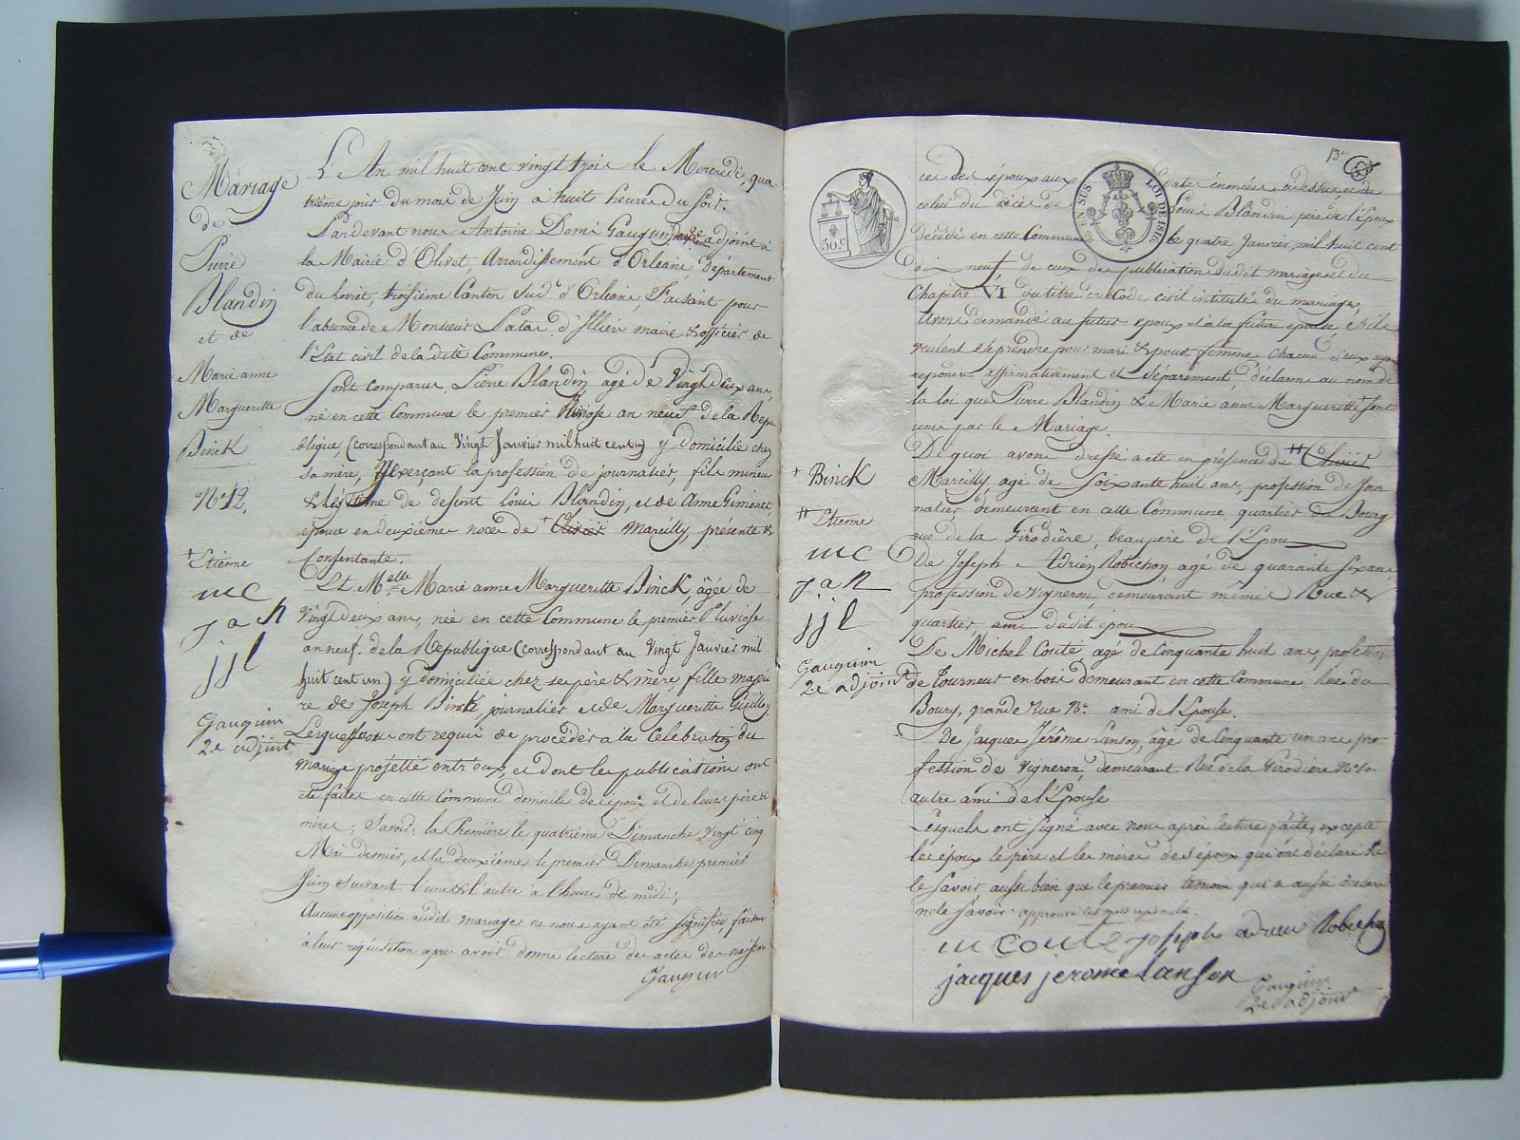 Mariage
de
Pierre
Blandin
et de
Marie anne
Margueritte
Binck
N° 12.
† Etienne
mc
j a R
jjl
Gauguin
2e adjoint
L'An mil huit cent vingt trois le Mercredi, qua
trième jour du mois de Juin à huit heures du soir.
Pardevant nous Antoine Denis Gauguin 2e adjoint à
la Mairie d'Olivet, Arrondissement d'Orléans, Département
du Loiret, troisième Canton Sud d'Orléans, Faisant pour
l'absence de Monsieur d'Illiers maire & officier de
l'Etat civil de la dite Commune.
Sont comparus Pierre Blandin agé de Vingt deux ans,
né en cette Commune le premier Pluviose an neuf de la Repu
blique, (correspondant au Vingt Janvier mil huit cent un) y domicilié chez
sa mère, exerçant la profession de journalier, fils mineur
& légitime de defunt Louis Blandin, et de Anne Gimonet
epouse en deuxième noces de † Olivier Marcilly, présente &
Consentante.
Et Melle Marie anne Margueritte Binck, âgée de
Vingt deux ans, née en cette Commune le premier Pluviose
an neuf de la Republique (correspondant au Vingt Janvier mil
huit cent un) y domiciliée chez ses père & mère, fille majeu
re de Joseph Binck journalier et de Marguerite
Lesquels nous ont requis de procéder à la Célébration du
Mariage projetté entr'eux, et dont les publications ont
été faites en cette Commune domicile des époux et de leurs pères &
mères; Savoir: la Première le quatrième Dimanche vingt cinq
Mai dernier, et la deuxième le premier Dimanche premier
Juin suivant l'une & l'autre à l'heure de midi;
Aucune opposition audit mariage ne nous ayant été signifiée, faisant
à leur réquisition après avoir donné lecture des actes de naissan
Gauguin
13e
ces des époux aux dates énoncées ci dessus, de
celui du décès de Louis Blandin père de l'Epoux
Décédé en cette Commune le quatre Janvier mil huit cent
dix neuf, de ceux des publications dudit mariage et du
Chapitre VI du titre du Code civil intitulé du mariage,
Avons demandé au futur epoux et à la future epouse, s'ils
veulent se prendre pour mari & pour femme chacun d'eux ayant
repondu affirmativement et séparement, déclarons au nom de
la loi que Pierre Blandin & Marie anne Marguerite † sont
unis par le Mariage.
De quoi avons dressé acte en présence de †† Olivier
Marcilly agé de Soixante huit ans, profession de Jour
nalier demeurant en cette Commune quartier du Bourg
rue de la Girodière, beaupère de l'Epoux
De Joseph Adrien Robichon agé de quarante six ans
profession de vigneron, demeurant même Rue &
quartier ami dudit époux
De Michel Couté agé de Cinquante huit ans, profession
de Tourneur en bois demeurant en cette Commune, lieu du
Bourg, grande rue N° ami de l'Epouse.
De Jacques Jérôme Lanson, âgé de Cinquante un ans pro-
fession de Vigneron, demeurant Rue de la Girodière N°
autre ami de l'Epouse
Lesquels ont signé avec nous après lecture faite, excepté
les époux le père et les mères des époux qui ont déclaré ne
le savoir aussi bien que le premier temoin qui a aussi déclaré
ne le savoir. approuvé
† Binck
†† Etienne
mc
j a R
jjl
Gauguin
2e adjoint
m Couté joseph adrien Robichon
jacques jerome Lanson
Gauguin
2e adjoint
50 c
LOI DE 1816